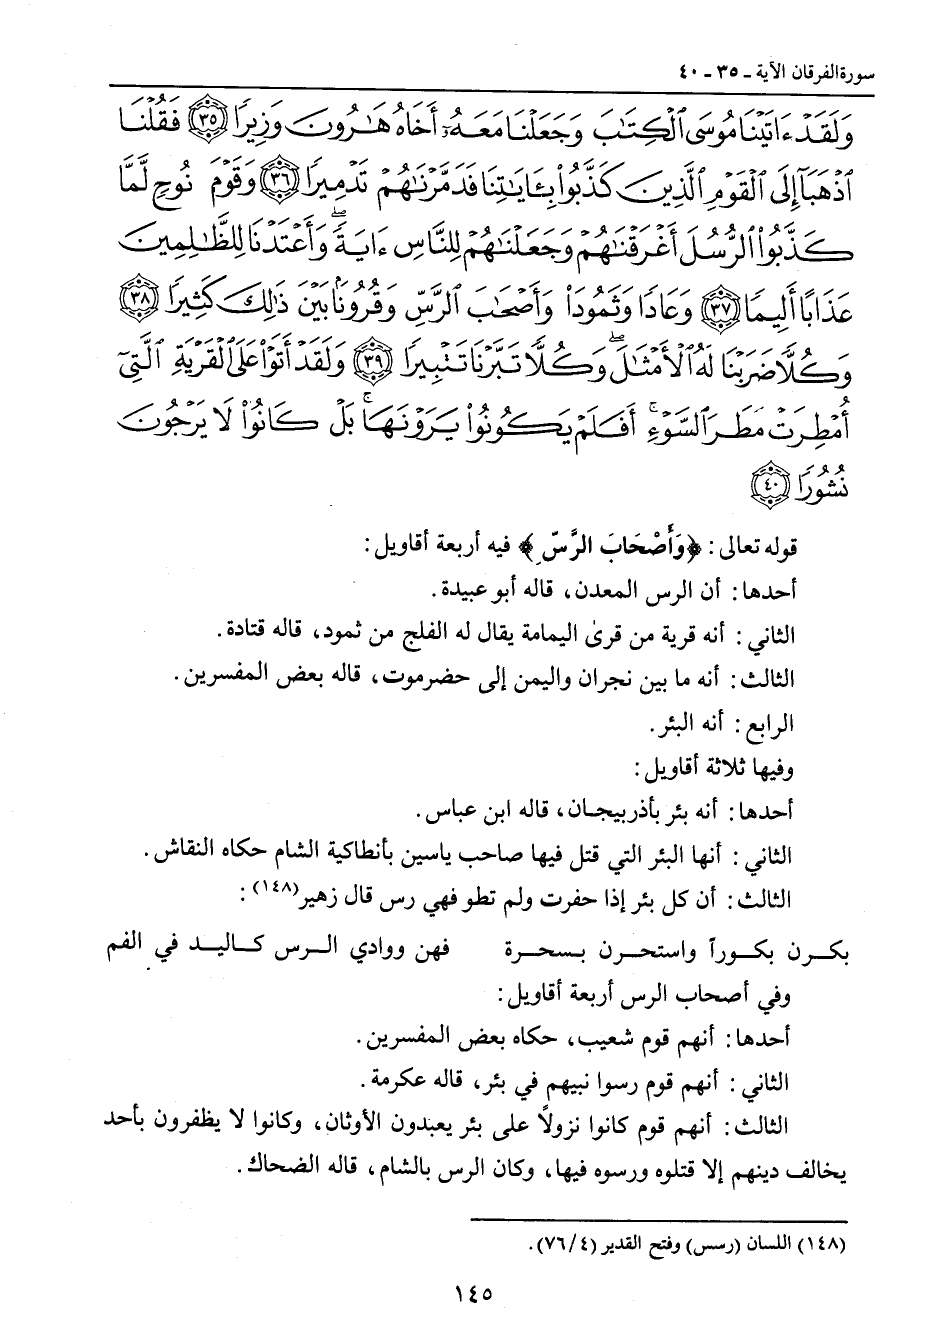 سورة الفرقان الآية ـ ٣٥ ـ ٤٠
وَلَقَدْ ءَاتَيْنَا مُوسَى ٱلْكِتَٰبَ وَجَعَلْنَا مَعَهُۥٓ أَخَاهُ هَٰرُونَ وَزِيرًا ٣٥ فَقُلْنَا
ٱذْهَبَآ إِلَى ٱلْقَوْمِ ٱلَّذِينَ كَذَّبُوا۟ بِـَٔايَٰتِنَا فَدَمَّرْنَٰهُمْ تَدْمِيرًا ٣٦ وَقَوْمَ نُوحٍ لَّمَّا
كَذَّبُوا۟ ٱلرُّسُلَ أَغْرَقْنَٰهُمْ وَجَعَلْنَٰهُمْ لِلنَّاسِ ءَايَةً ۖ وَأَعْتَدْنَا لِلظَّٰلِمِينَ
عَذَابًا أَلِيمًا ٣٧ وَعَادًا وَثَمُودَا۟ وَأَصْحَٰبَ ٱلرَّسِّ وَقُرُونًۢا بَيْنَ ذَٰلِكَ كَثِيرًا ٣٨
وَكُلًّا ضَرَبْنَا لَهُ ٱلْأَمْثَٰلَ ۖ وَكُلًّا تَبَّرْنَا تَتْبِيرًا ٣٩ وَلَقَدْ أَتَوْا۟ عَلَى ٱلْقَرْيَةِ ٱلَّتِىٓ
أُمْطِرَتْ مَطَرَ ٱلسَّوْءِ ۚ أَفَلَمْ يَكُونُوا۟ يَرَوْنَهَا ۚ بَلْ كَانُوا۟ لَا يَرْجُونَ
نُشُورًا ٤٠
قوله تعالى: ﴿وَأَصْحَابَ الرَّسِّ﴾ فيه أربعة أقاويل:
أحدها: أن الرس المعدن، قاله أبو عبيدة.
الثاني: أنه قرية من قرىٰ اليمامة يقال له الفلج من ثمود، قاله قتادة.
الثالث: أنه ما بين نجران واليمن إلى حضرموت، قاله بعض المفسرين.
الرابع: أنه البئر.
وفيها ثلاثة أقاويل:
أحدها: أنه بئر بأذربيجان، قاله ابن عباس.
الثاني: أنها البئر التي قتل فيها صاحب ياسين بأنطاكية الشام حكاه النقاش.
الثالث: أن كل بئر إذا حفرت ولم تطو فهي رس قال زهير(١٤٨):
بكرن بكوراً واستحرن بسحرة فهن ووادي الرس كاليد في الفم
وفي أصحاب الرس أربعة أقاويل:
أحدها: أنهم قوم شعيب، حكاه بعض المفسرين.
الثاني: أنهم قوم رسوا نبيهم في بئر، قاله عكرمة.
الثالث: أنهم قوم كانوا نزولاً على بئر يعبدون الأوثان، وكانوا لا يظفرون بأحد
يخالف دينهم إلا قتلوه ورسوه فيها، وكان الرس بالشام، قاله الضحاك.
(١٤٨) اللسان (رسس) وفتح القدير (٤/ ٧٦).
١٤٥